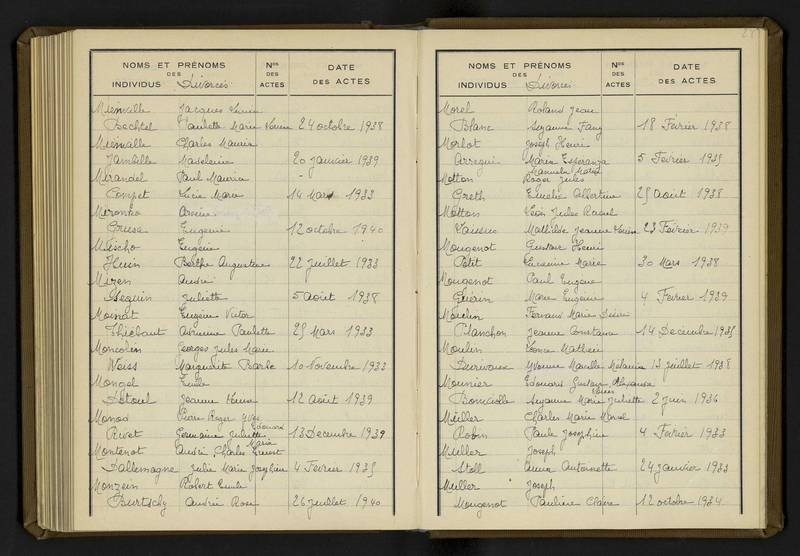 NOMS ET PRÉNOMS
DES
INDIVIDUS Divorcés
Nos
DES
ACTES
DATE
DES ACTES
Jacques
Bechtel Paulette Marie Louise 24 octobre 1938
Charles Maurice
Madeleine 20 janvier 1939
Mirandel Paul Maurice
Lucie Marie 14 Mars 1933
Eugénie 12 octobre 1940
Eugène
Husin Berthe Augustine 22 juillet 1933
André
Seguin Juliette 5 août 1938
Eugène Victor
Thiébaut Paulette 25 Mars 1933
Moncolin Georges Jules Marie
Weiss Marguerite Barbe 10 Novembre 1933
Mongel Emile
Jeanne 12 août 1939
Monod Pierre Roger
Rivet Germaine Juliette 13 Decembre 1939
Montenot André Charles Ernest
Dallemagne Julie Marie Joséphine 4 Février 1935
Monzein Robert Emile
Burtschy Andrée Rose 26 juillet 1940
NOMS ET PRÉNOMS
DES
INDIVIDUS Divorcés
Nos
DES
ACTES
DATE
DES ACTES
Morel Roland Jean
Blanc Suzanne Fany 18 Février 1938
Morlot Joseph Henri
Arregui Maria Esperanza 5 Février 1935
Motton Roger Jules
Greth Emélie Albertine 25 août 1938
Motton Léon Jules Raoul
Mathilde Jeanne Louise 23 Février 1939
Mougenot Gustave Henri
Petit Marie 30 Mars 1938
Mougenot Paul Eugène
Guérin Marie Eugénie 4 Février 1939
Moulin Fernand Marie Désiré
Planchon Jeanne Constance 14 Decembre 1935
Moulin
Yvonne Mélanie 13 juillet 1938
Mounier Edouard Gustave Alphonse
Suzanne Marie Juliette 2 juin 1936
Müller Charles Marie Marcel
Robin Paule Joséphine 4 Février 1933
Müller Joseph
Stoll Anna Antoinette 24 janvier 1933
Müller Joseph
Mougenot Pauline Claire 12 octobre 1934